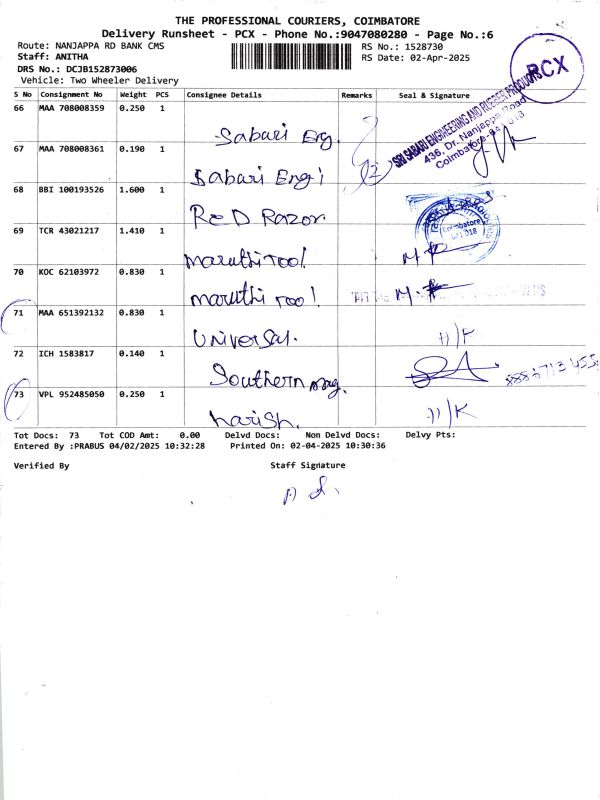 THE PROFESSIONAL COURIERS, COIMBATORE
Delivery Runsheet - PCX - Phone No.:9047080280 - Page No.:6
Route: NANJAPPA RD BANK CMS
RS No.: 1528730
Staff: ANITHA
RS Date: 02-Apr-2025
DRS No.: DCJB152873006
Vehicle: Two Wheeler Delivery
PCX
S No Consignment No Weight PCS Consignee Details Remarks Seal & Signature
66 MAA 708008359 0.250 1
Sabari Eng.
SRI SABARI ENGINEERING AND RUBBER PRODUCTS
436, Dr. Nanjappa Road
Coimbatore
67 MAA 708008361 0.190 1
Sabari Engi
2
68 BBI 100193526 1.600 1
ReD Razor
Coimbatore
641 018
69 TCR 43021217 1.410 1
maruthi tool
70 KOC 62103972 0.830 1
maruthi tool
71 MAA 651392132 0.830 1
Universal.
72 ICH 1583817 0.140 1
Southern mg.
73 VPL 952485050 0.250 1
harish.
Tot Docs: 73 Tot COD Amt: 0.00 Delvd Docs: Non Delvd Docs: Delvy Pts:
Entered By :PRABUS 04/02/2025 10:32:28 Printed On: 02-04-2025 10:30:36
Verified By Staff Signature